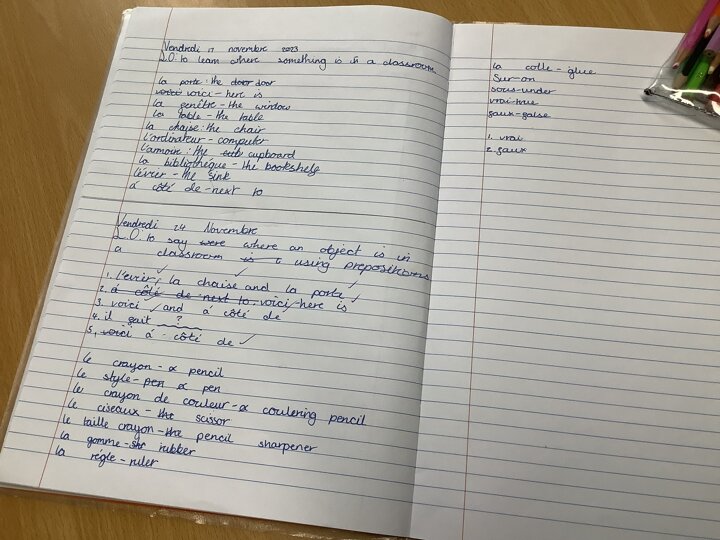 Vendredi 17 novembre 2023
L.O: to learn where something is in a classroom.
la porte: the door door
voici voici - here is
la fenêtre - the window
la table - the table
la chaise: the chair
l'ordinateur - computer
l'armoire: the cupboard
la bibliothéque - the bookshelf
l'évier - the sink
á côté de - next to
Vendredi 24 Novembre
L.O: to say were where an object is in
a classroom using prepositions
1. l'évier, la chaise and la porte
2. á côté de - next to, voici - here is
3. voici and á côté de
4. il fait ?
5. voici á côté de
le crayon - a pencil
le style - pen a pen
le crayon de couleur - a coulering pencil
le ciseaux - the scissor
le taille crayon - the pencil sharpener
la gomme - rubber
la régle - ruler
la colle - glue
sur - on
sous - under
vrai - true
faux - false
1. vrai
2. faux